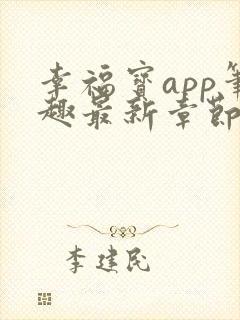 幸福宝app笔
趣最新章节
李建民